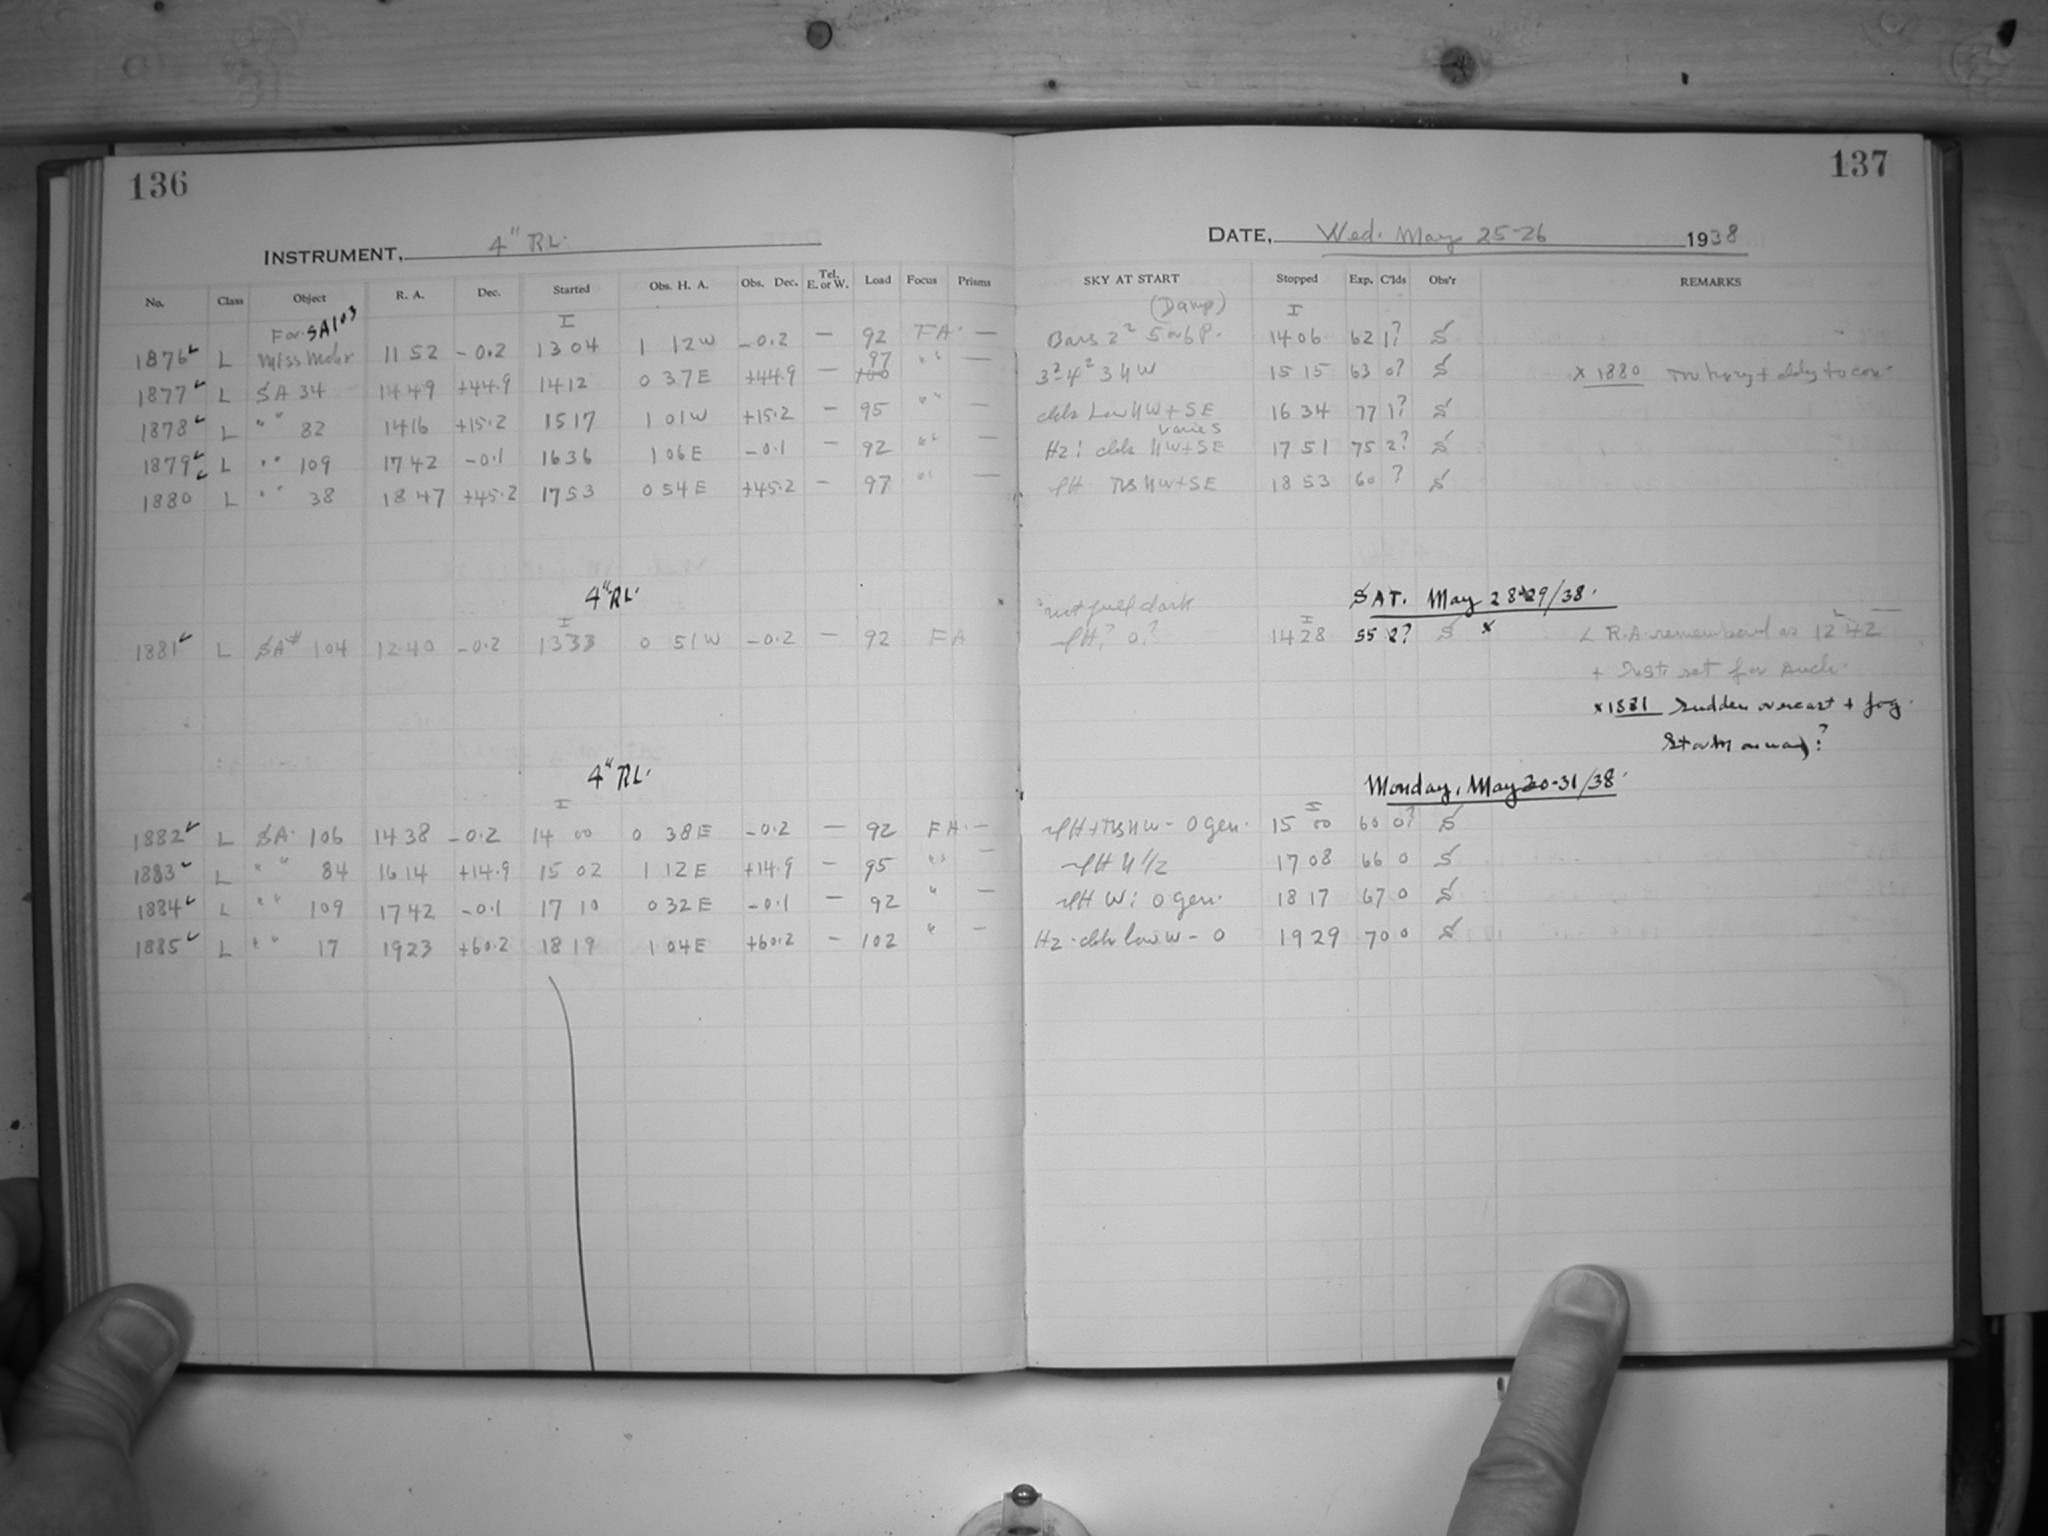 136
137
INSTRUMENT, 4" RL.
DATE, Wed. May 25-26 1938
No. Class Object R. A. Dec. Started Obs. H. A. Obs. Dec. Tel. E. or W. Load Focus Prisms
SKY AT START Stopped Exp. C'lds Obs'r REMARKS
For SA103 I (Damp) I
1876 L Miss Mohr 11 52 -0.2 13 04 1 12W -0.2 — 92 FA. — Bars 2² 5 or 6 P. 14 06 62 1? S
1877 L SA 34 14 49 +44.9 14 12 0 37E +44.9 — 97 100 " " — 3² 4² 3 NW 15 15 63 0? S x 1880
1878 L " " 82 14 16 +15.2 15 17 1 01W +15.2 — 95 " " — clds Low NW + SE 16 34 77 1? S
varies
1879 L " " 109 17 42 -0.1 16 36 1 06E -0.1 — 92 " " — Hz: clds NW+SE 17 51 75 2? S
1880 L " " 38 18 47 +45.2 17 53 0 54E +45.2 — 97 " " — NW+SE 18 53 60 ? S
4" RL. not full dark SAT. May 28-29/38.
I I
1881 L SA# 104 12 40 -0.2 13 33 0 51W -0.2 — 92 FA 0? 14 28 55 2? S x R.A. remembered as 12 42
+ Inst. set for such.
x 1881 Sudden overcast + fog.
4" RL. Monday, May 30-31/38.
I I
1882 L SA. 106 14 38 -0.2 14 00 0 38E -0.2 — 92 FA. — NW - 0 gen. 15 00 60 0? S
1883 L " " 84 16 14 +14.9 15 02 1 12E +14.9 — 95 " " — N 1/2 17 08 66 0 S
1884 L " " 109 17 42 -0.1 17 10 0 32E -0.1 — 92 " — W: 0 gen. 18 17 67 0 S
1885 L " " 17 19 23 +60.2 18 19 1 04E +60.2 — 102 " — Hz. clds low W - 0 19 29 70 0 S